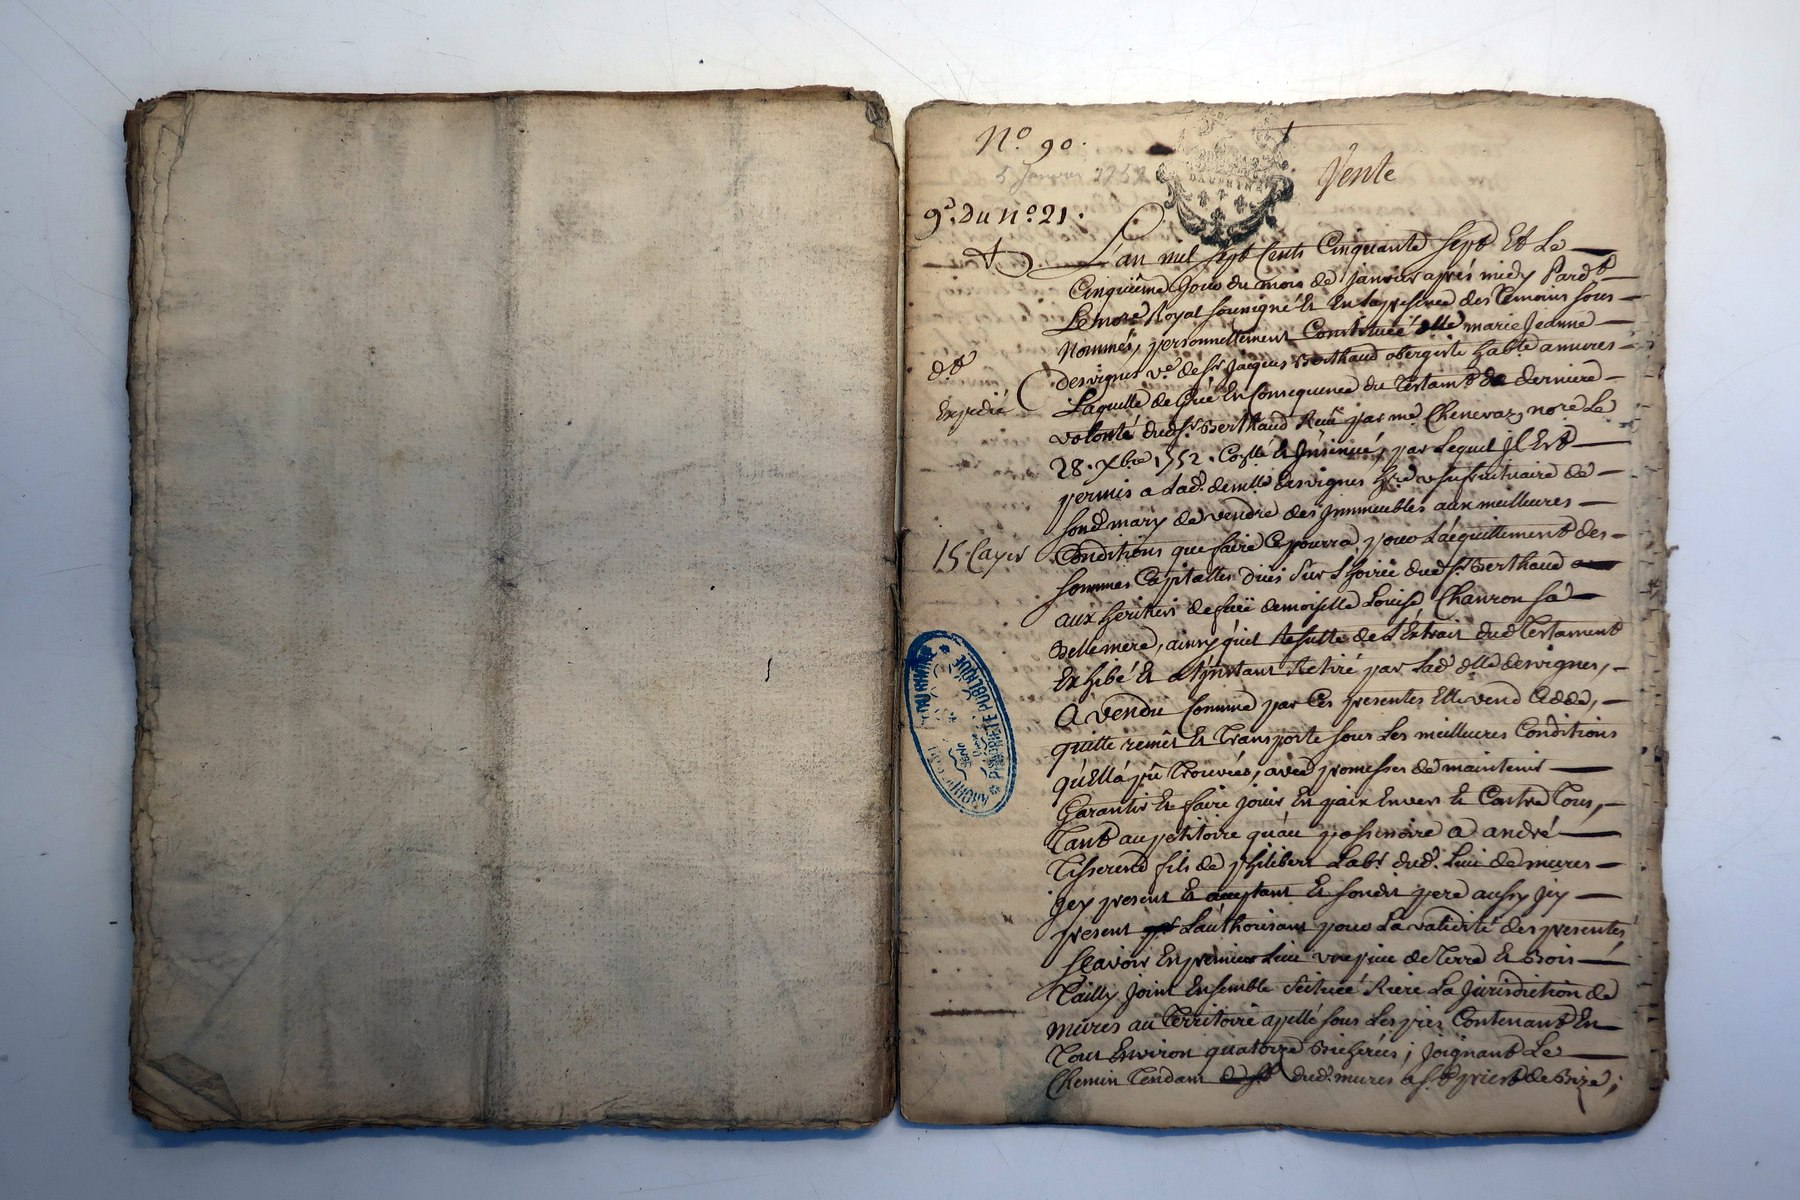 N.º 90.
5 Janvier 1757
DAUPHINÉ
Vente
9.ᵉ du n.º 21.
L'an mil sept Cents Cinquante sept Et Le
Cinquième Jour du mois de Janvier après midy Pard.t
Le no.re Royal soussigné Et En la presence des Temoins sous
Nommés, personnellement Constituée d.lle marie Jeanne
Desvignes v.e de s.r Jacques Berthaud obergiste hab.te a mures
d.t
Expedié
Laquelle de Gré En Consequence du Testam.t de derniere
volonté dud. s.r Berthaud Reçu par me Chenevaz no.re Le
28. Xbre 1752. Collé & Insinué, par Lequel Il Est
permis a Lad. demlle desvignes h.re usufructuaire de
sond. mary de vendre des Immeubles aux meilleures
15 Cayer
Conditions que faire Ce pourra pour L'acquittement des
sommes Capitalles dües sur L'hoirie dud. s.r Berthaud
aux heritiers de füe demoiselle Louise Chauvon sa
Bellemere, ainsy quil Resulte de L'Extrait dud. Testament
Exhibé Et a L'instant Retiré par Lad. d.lle desvignes,
A vendu Comme par Ces presentes Elle vend Cedde,
quitte remêt Et Transporte sous Les meilleures Conditions
qu'Ell'a pû Trouver, avec promesses de maintenir
Garantir Et faire jouir En paix Envers Et Contre Tous,
Tant au petitoire qu'au possessoire a andré
Tisserend fils de philibert Lab.r dud. Lieu de mures
Icy present Et acceptant Et sondit pere aussy Icy
present L'authorisant pour La validité des presentes
Sçavoir En premier Lieu une piece de Terre Et Bois
Tailly Joint Ensemble scituée Riere La Jurisdiction de
mures au Territoire apellé sous Les pres Contenant En
Tout Environ quatorze Bicherées ; Joignant Le
Chemin Tendant dud. mures a s.t priest de Bize ;
PROPRIÉTÉ PUBLIQUE